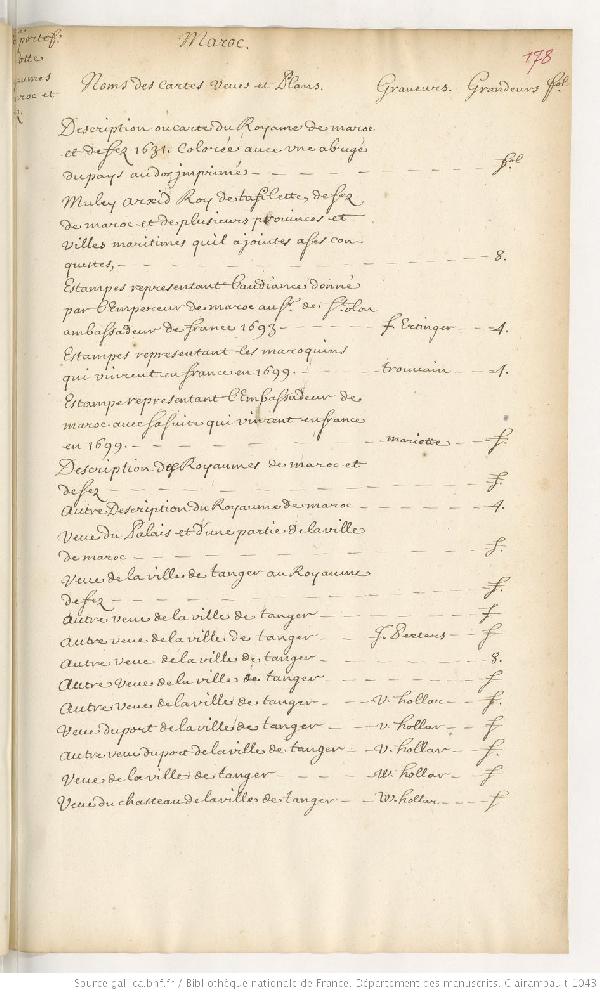 Maroc.
178
Noms des Cartes Veues et Plans. Graveurs. Grandeurs fol.
Description ou carte du Royame de maroc
et de fez 1631. Colorée avec vne abregé
du pays au dos jmprimé - fol
Muley arxid Roy de tafilette, de fez
de maroc et de plusieurs provinces et
villes maritimes quil a jointes a ses con
questes, - 8.
Estampes representant l'audiance donné
par l'Empereur de maroc au Sr. de St. olon
ambassadeur de france 1693 - f. Ertinger - 4.
Estampes representant les maroquins
qui vinrent en france en 1699. - trouvain - 4.
Estampe representant l'Embassadeur de
maroc avec sa suite qui vinrent en france
en 1699. - mariette - f.
Description des Royaumes de maroc et
de fez - f.
Autre Description du Royaume de maroc - 4.
Veue du Palais et d'une partie de la ville
de maroc - f.
Veue de la ville de tanger au Royaume
de fez - f.
Autre veue de la ville de tanger - f
Autre veue de la ville de tanger - J. Peeters - f
Autre veue de la ville de tanger - 8.
Autre Veue de la ville de tanger - f
Autre Veue de la ville de tanger - v. hollar - f.
Veue du port de la ville de tanger - v. hollar - f
Autre veue du port de la ville de tanger - v. hollar - f.
Veue de la ville de tanger - W. hollar - f
Veue du chasteau de la ville de tanger - W. hollar - f
Source gallica.bnf.fr / Bibliothèque nationale de France. Département des manuscrits. Clairambault 1043